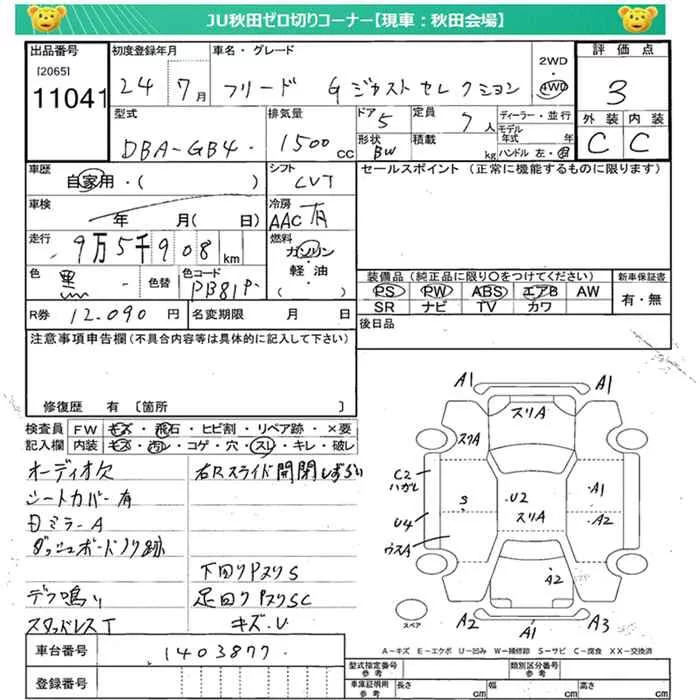 JU秋田ゼロ切りコーナー【現車：秋田会場】
出品番号 初度登録年月 車名・グレード 2WD 評価点
[2065] 24 7月 フリード G ジャストセレクション 4WD 3
11041
型式 排気量 ドア 5 定員 7人 ディーラー・並行 外装 内装
DBA-GB4 1500cc 形状 BW 積載 kg モデル年式 年 C C
ハンドル 左・右
車歴 自家用・( ) シフト CVT セールスポイント（正常に機能するものに限ります）
車検 年 月( 日) 冷房 AAC 有
走行 9万5千908km 燃料 ガソリン
軽油
( )
色 黒 色替 色コード PB81P 装備品（純正品に限り○をつけてください） 新車保証書
PS PW ABS エアB AW 有・無
SR ナビ TV カワ
R券 12.090円 名変期限 月 日 後日品
注意事項申告欄（不具合内容等は具体的に記入して下さい）
修復歴 有 〔箇所 〕
検査員 FW キズ・飛石・ヒビ割・リペア跡・×要
記入欄 内装 キズ・汚レ・コゲ・穴・スレ・キレ・破レ
オーディオ欠 右Rスライド開閉しずらい
シートカバー有
日ミラーA
ダッシュボードノリ跡
下回りPヌリS
デフ鳴り 足回りPヌリSC
スタッドレスT キズ.U
車台番号 1403877
登録番号
A1 A1
スリA
スリA
C2 ハガレ
S U2 A1
U4 スリA A2
ウスA
A2
スペア A2 A1 A3
A－キズ E－エクボ U－凹み W－補修跡 S－サビ C－腐食 XX－交換済
型式指定番号 参考 類別区分番号 参考
車庫証明用 参考 長さ cm 幅 cm 高さ cm